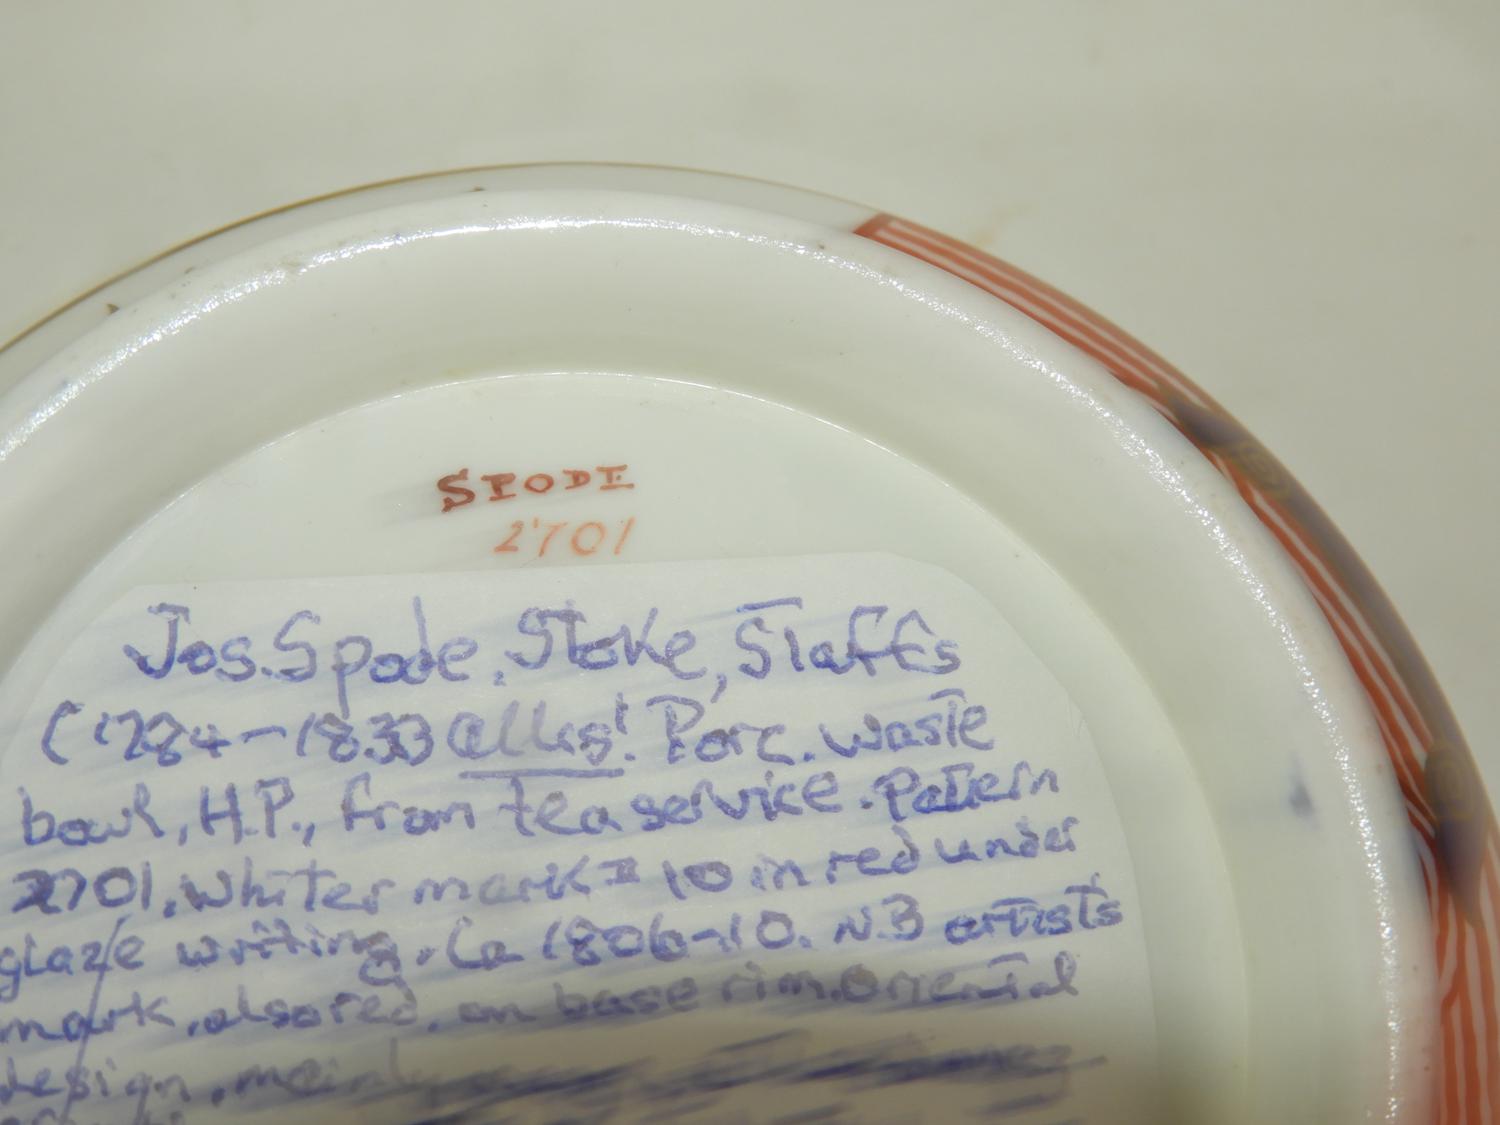 SPODE
2701
Jos. Spode. Stoke, Staffs
(1784-1833 Porc. waste
bowl, H.P., from tea service. Pattern
2701. Whiter mark 10 in red under
glaze writing. Ca 1806-10. N.B artists
mark, also red, on base rim. Oriental
design, mainly